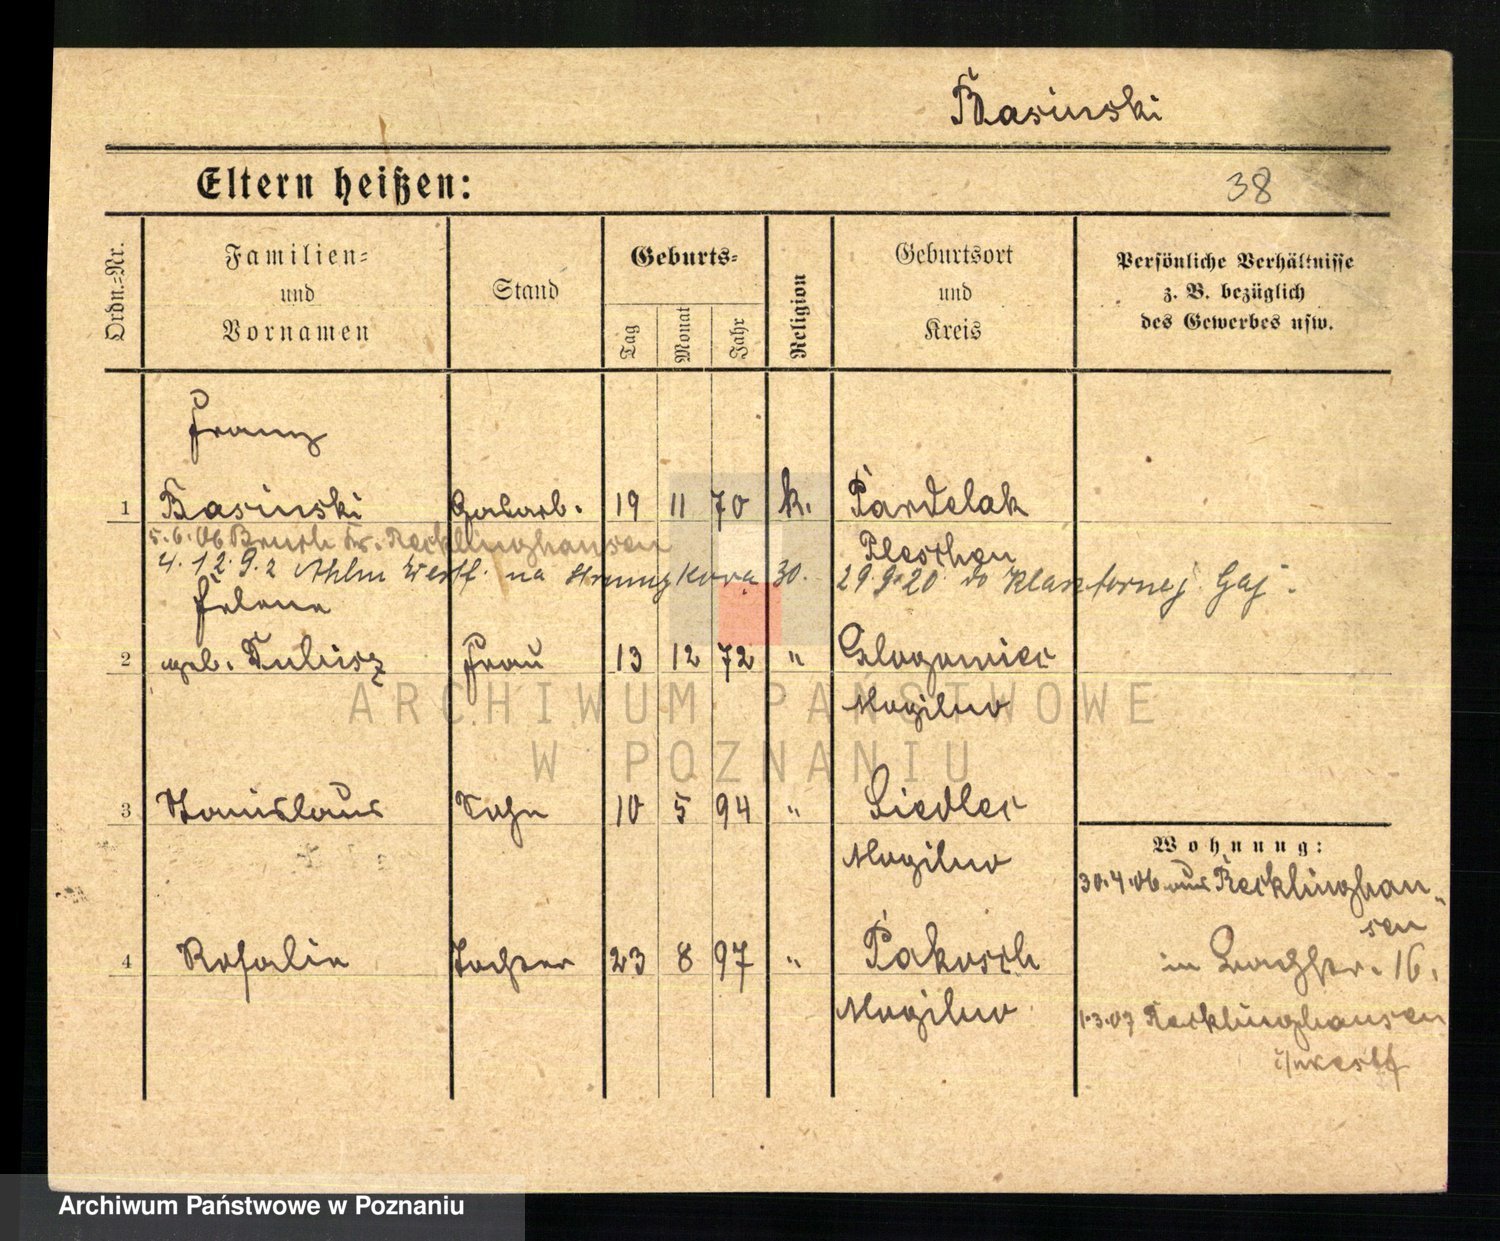 Basinski
Eltern heißen:
38
Ordn.=Nr.
Familien=
und
Vornamen
Stand
Geburts=
Tag
Monat
Jahr
Religion
Geburtsort
und
Kreis
Persönliche Verhältnisse
z. B. bezüglich
des Gewerbes usw.
Franz
1 Basinski 19 11 70 k. Pardelak
5.6.06 Bruch Kr. Recklinghausen
Pleschen
4.12.9.2 Ahlen Westf. na 30. 29.9.20 do Klasztornej Gaj.
Helene
2 geb. Tubisz Frau 13 12 72 " Glogowiec
Mogilno
3 Stanislaus Sohn 10 5 94 " Siedlec
Mogilno
4 Rosalie Tochter 23 8 97 " Pakosch
Mogilno
Wohnung:
30.4.06 aus Recklinghau-
sen
in 16.
1.3.07 Recklinghausen
i/westf
ARCHIWUM PAŃSTWOWE
W POZNANIU
Archiwum Państwowe w Poznaniu